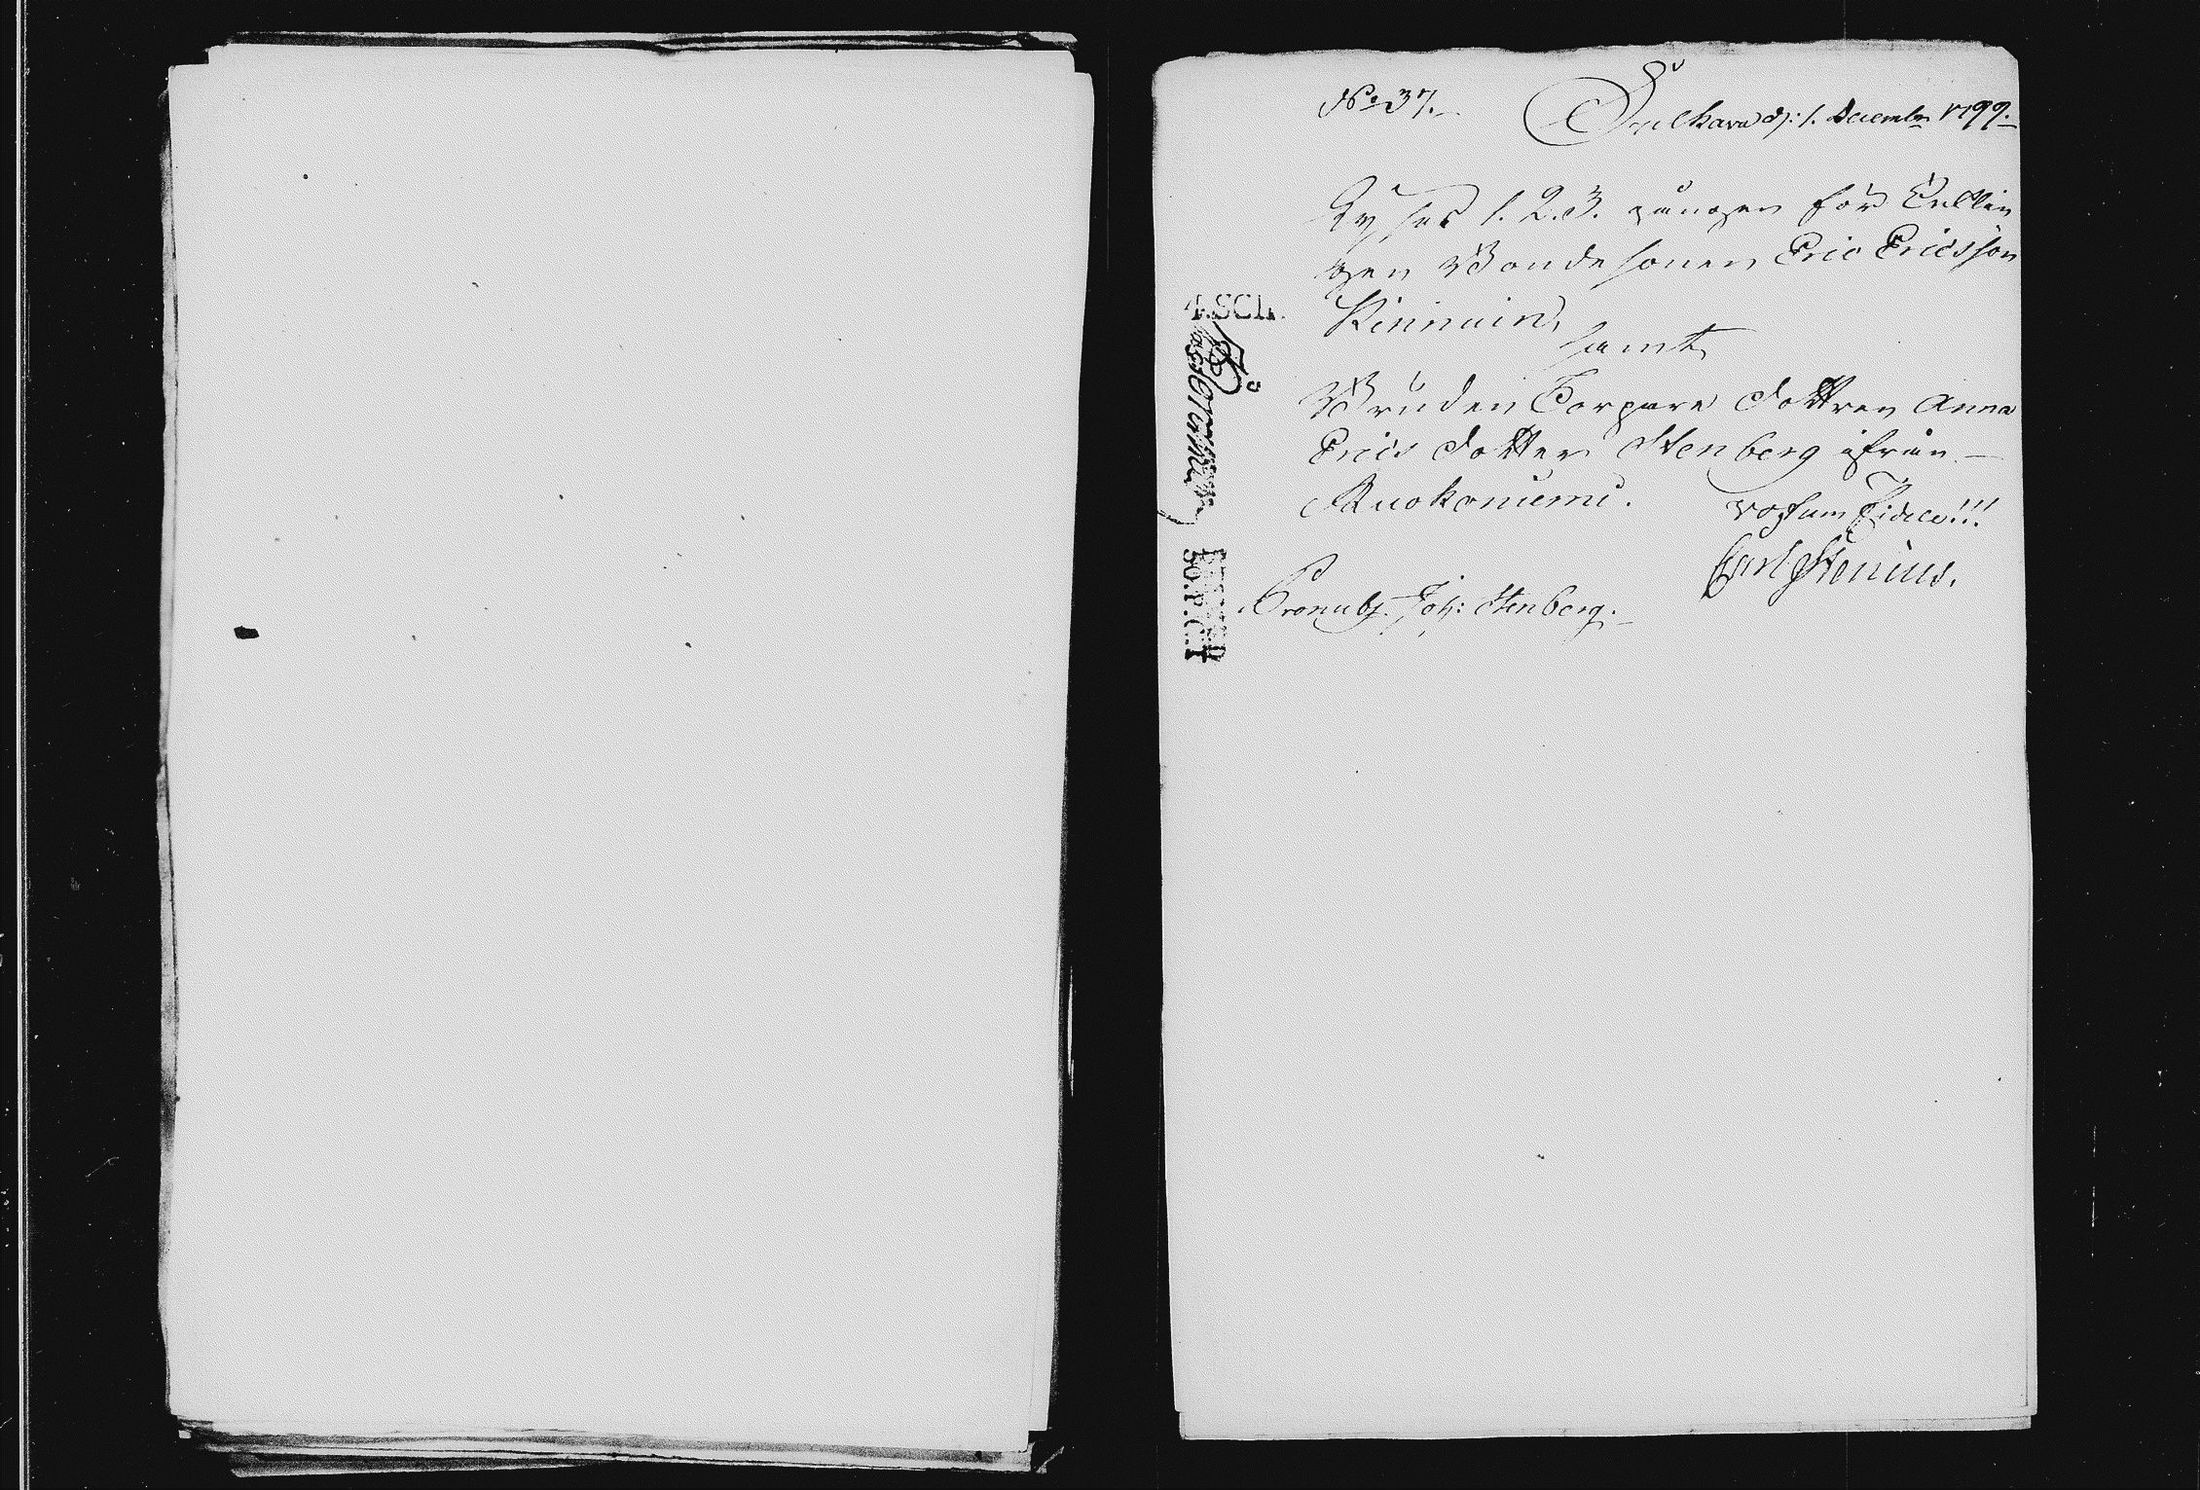 No 37.
Sulkava d: 1. December 1799.
Lyses 1. 2. 3. gången för Ynglin
gen Bondesonen Eric Ericsson
Kinnuin,
samt
Bruden Torpare dottren Anna
Erics dotter Stenberg ifrån
Ruokoniemi.
Carl Stenius.
Pronub. Joh: Stenberg.
4.SCH.